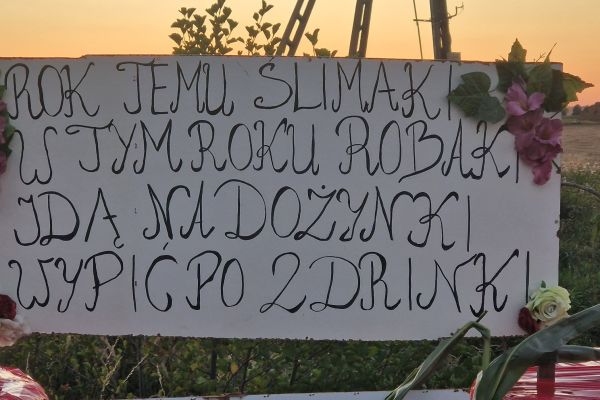 ROK TEMU ŚLIMAKI
W TYM ROKU ROBAKI
IDĄ NA DOŻYNKI
WYPIĆ PO 2 DRINKI